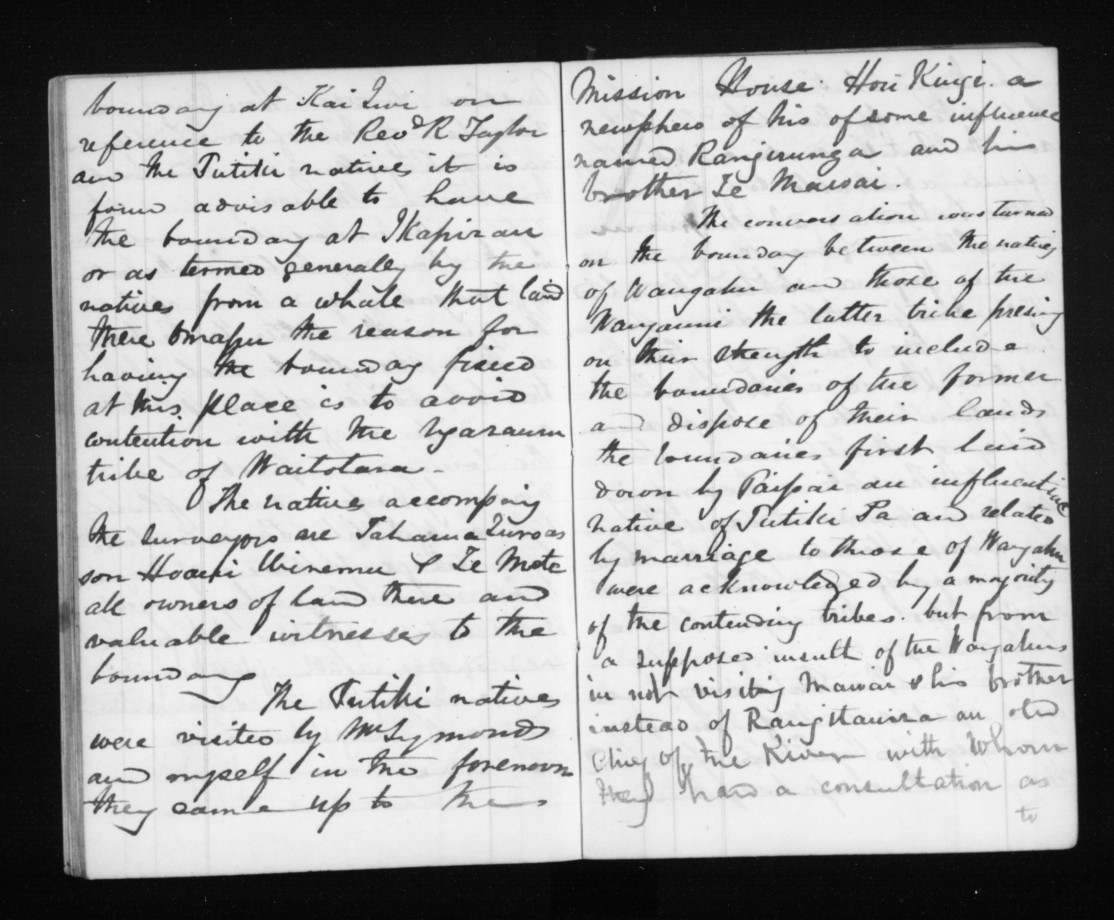 boundary at Kai Iwi on
reference to the Revd R Taylor
and the Tutiki natives it is
found advisable to have
the boundary at
or as termed generally by the
natives from a whale that land
there the reason for
having the boundary fixed
at this place is to avoid
contention with the Ngarauru
tribe of Waitotara
The natives accompnig
the surveyors are Tahana Turoas
son Hoani Wiremu & Te Mote
all owners of land there and
valuable witnesses to the
boundary
The Tutiki natives
were visited by Mr Symonds
and myself in the forenoon
they came up to the
Mission House Hori Kingi a
newphew of his of some influence
named Rangirunga and his
brother Te Mawai.
The conversation was turned
on the bounday between the natives
of Wangahu and those of the
Wanganui the latter tribe presing
on their strength to include
the boundaries of the former
and dispose of their lands
the boundaries first laid
down by Paipai an influential
native of Tutiki Pa and related
by marriage to those of Wangahu
were acknowledged by a majority
of the contending tribes. but from
a supposed insult of the Wangahus
in not visiting Mawai & his brother
instead of Rangitauira an old
Chief of the River with whom
they had a consultation as
to